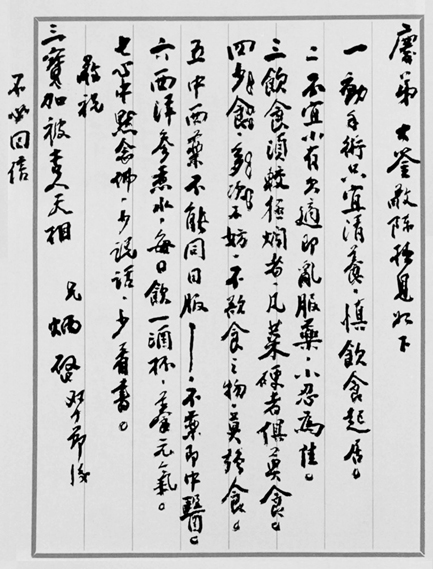 慶弟 大鑒敬陳拙見如下
一 動手術只宜清養、慎飲食起居。
二 不宜小有欠適即亂服藥、小忍為佳。
三 飲食須較極爛者、凡菜硬者俱莫食。
四 少餐、多次不妨、不欲食之物、莫強食。
五 中西藥不能同日服——不藥即中醫。
六 西洋參煮水、每日飲一酒杯、養元氣。
七 心中默念佛、少說話、少看書。
敬祝
三寶加被吉人天相
兄 炳啓 雙十節後
不必回信